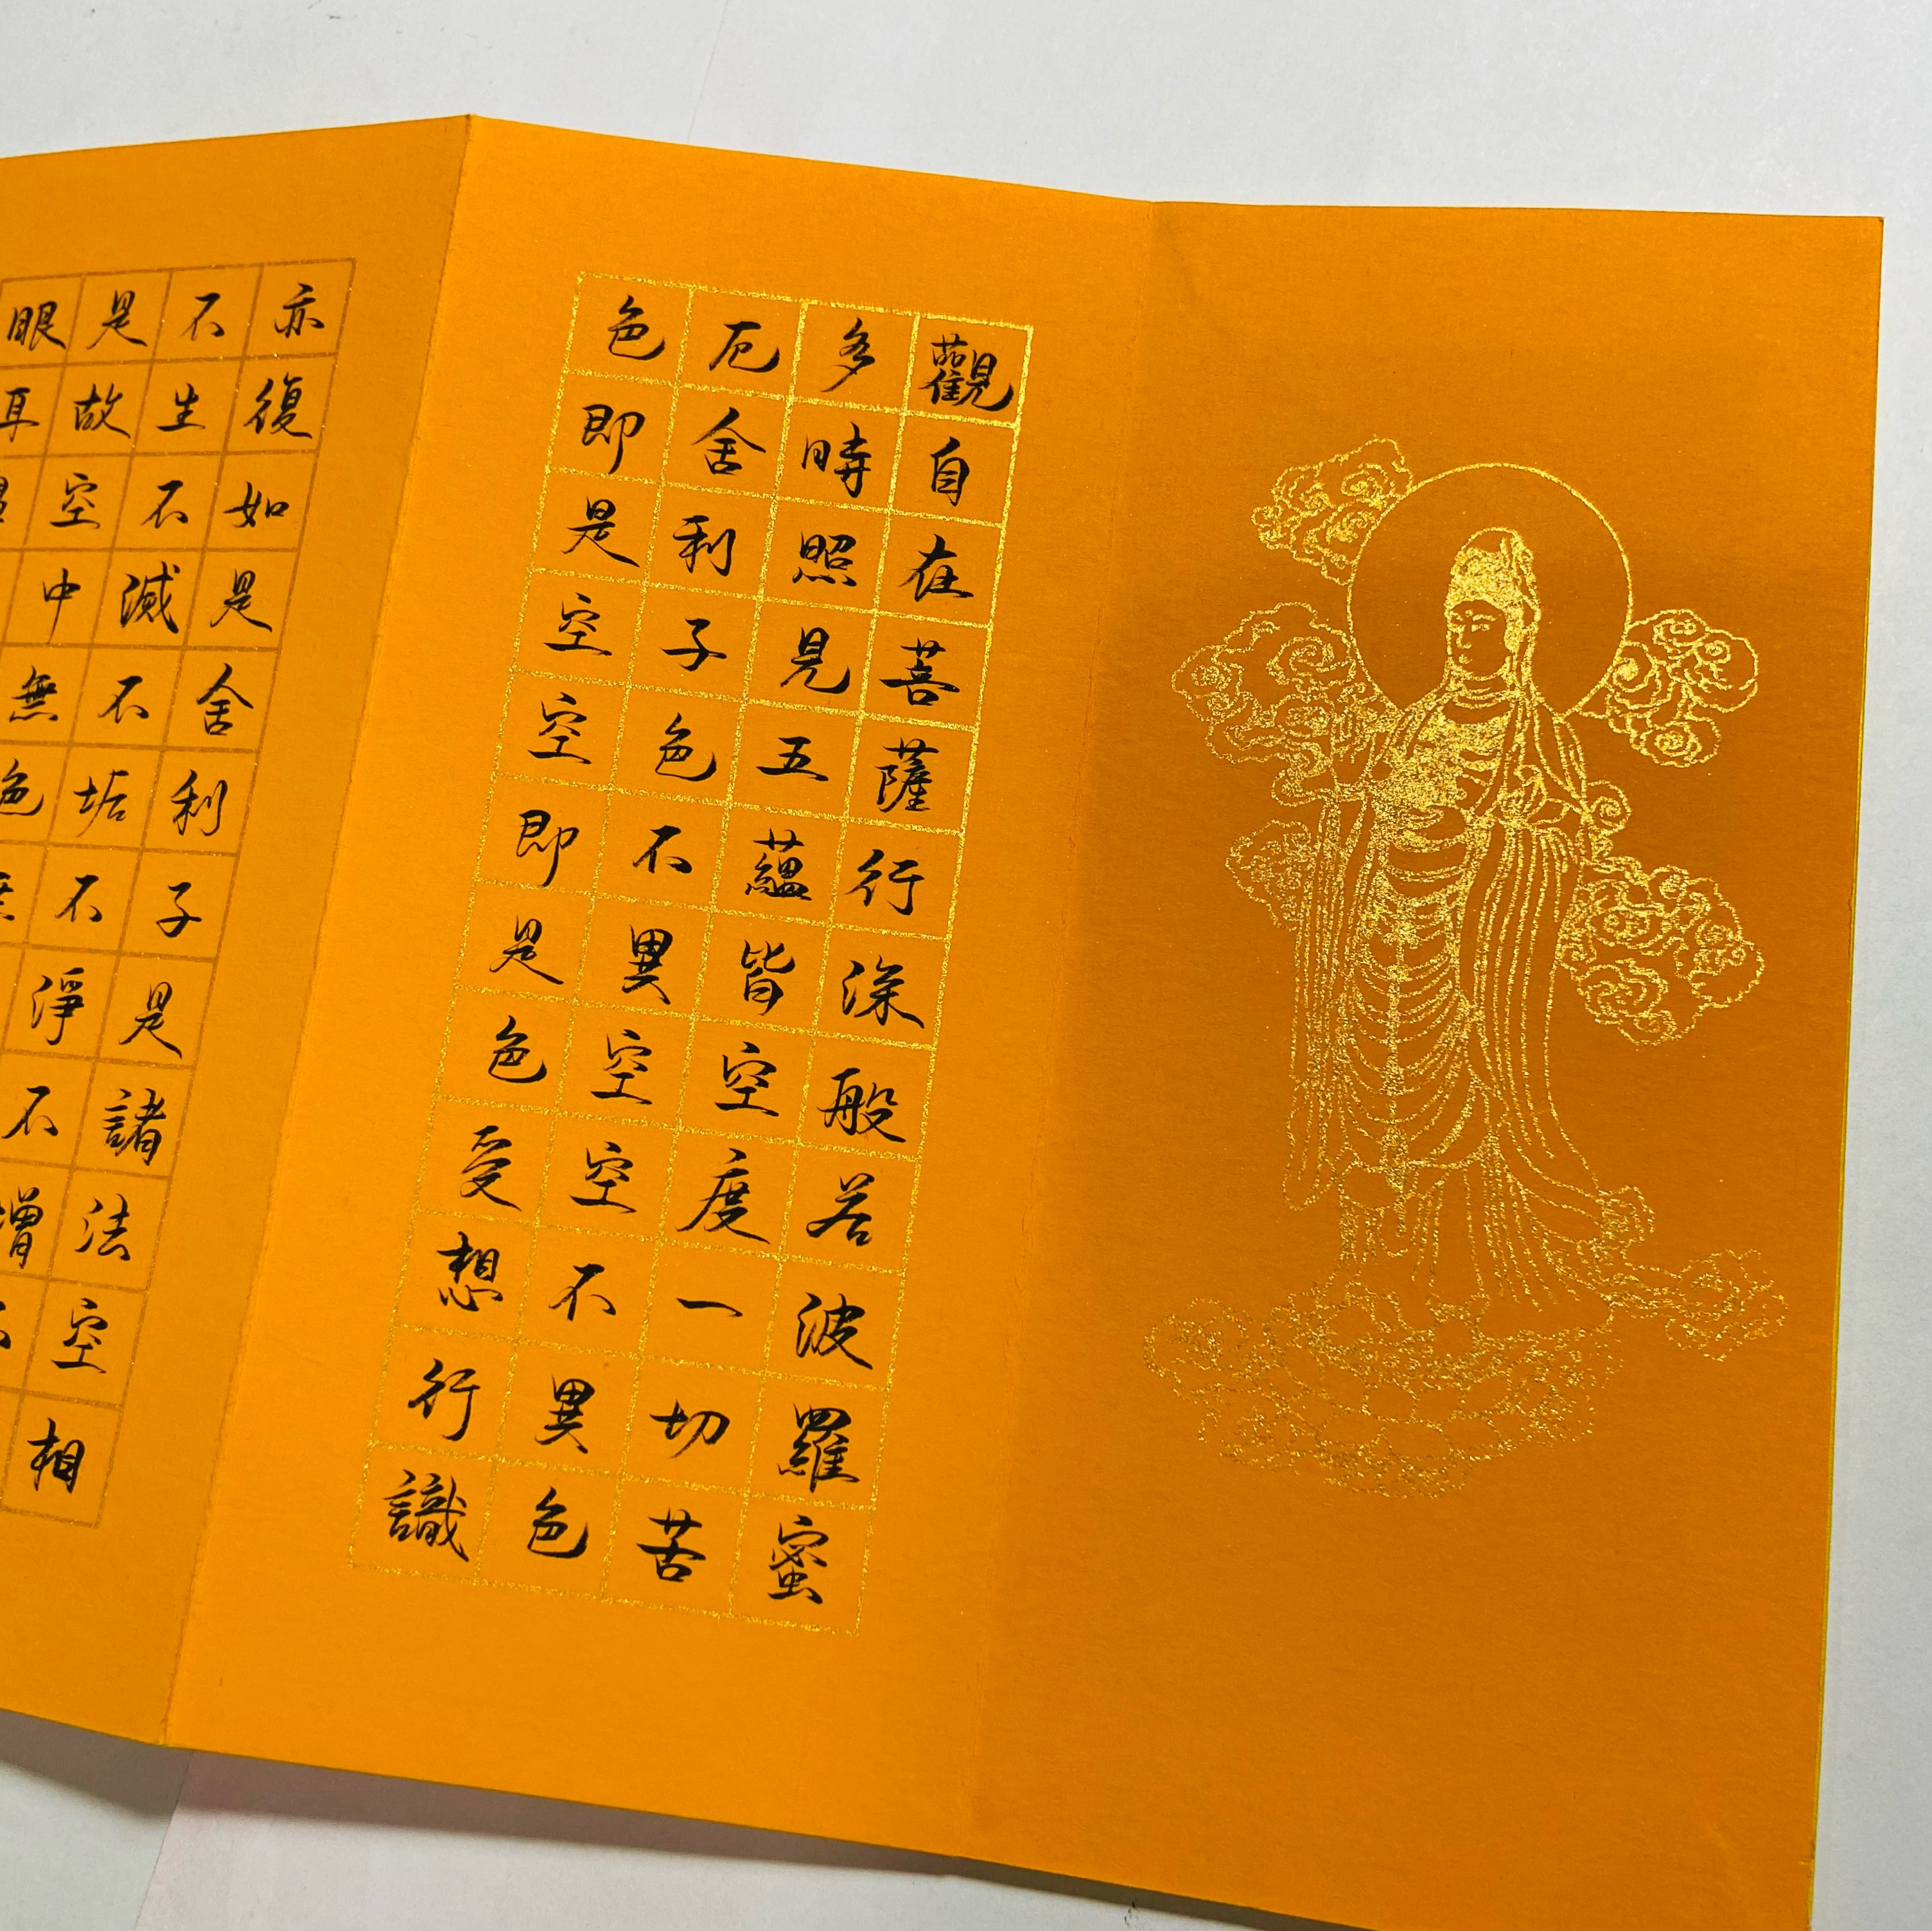 觀自在菩薩行深般若波羅蜜
多時照見五蘊皆空度一切苦
厄舍利子色不異空空不異色
色即是空空即是色受想行識
亦復如是舍利子是諸法空相
不生不滅不垢不淨不增
是故空中無色
眼耳